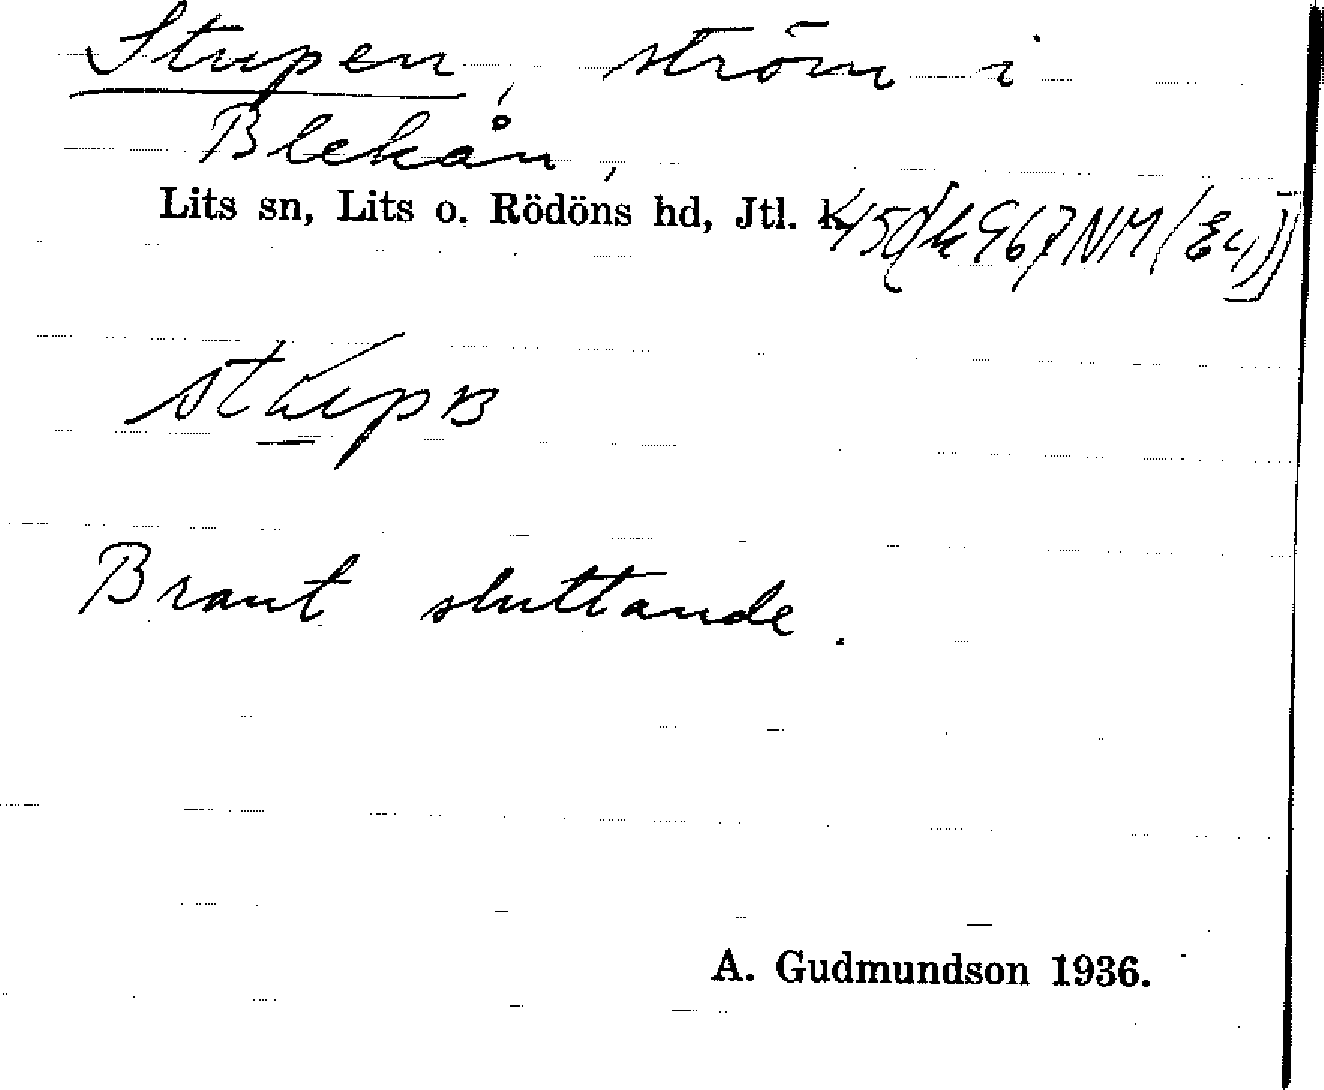 Stupen, ström i
Blekån,
Lits sn, Lits o. Rödöns hd, Jtl.
Brant sluttande.
A. Gudmundson 1936.